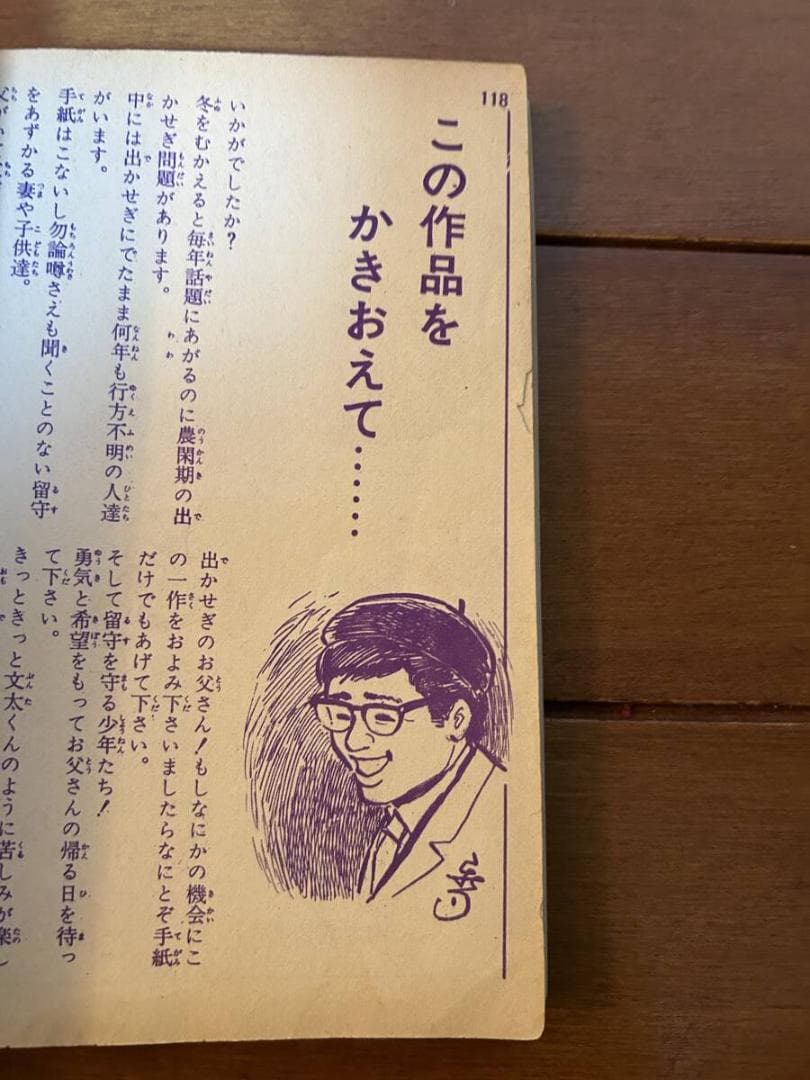 118
この作品を
かきおえて……
いかがでしたか?
冬をむかえると毎年話題にあがるのに農閑期の出
かせぎ問題があります。
中には出かせぎにでたまま何年も行方不明の人達
がいます。
手紙はこないし勿論噂さえも聞くことのない留守
をあずかる妻や子供達。
出かせぎのお父さん!もしなにかの機会にこ
の一作をおよみ下さいましたらなにとぞ手紙
だけでもあげて下さい。
そして留守を守る少年たち!
勇気と希望をもってお父さんの帰る日を待っ
て下さい。
きっときっと文太くんのように苦しみが楽し